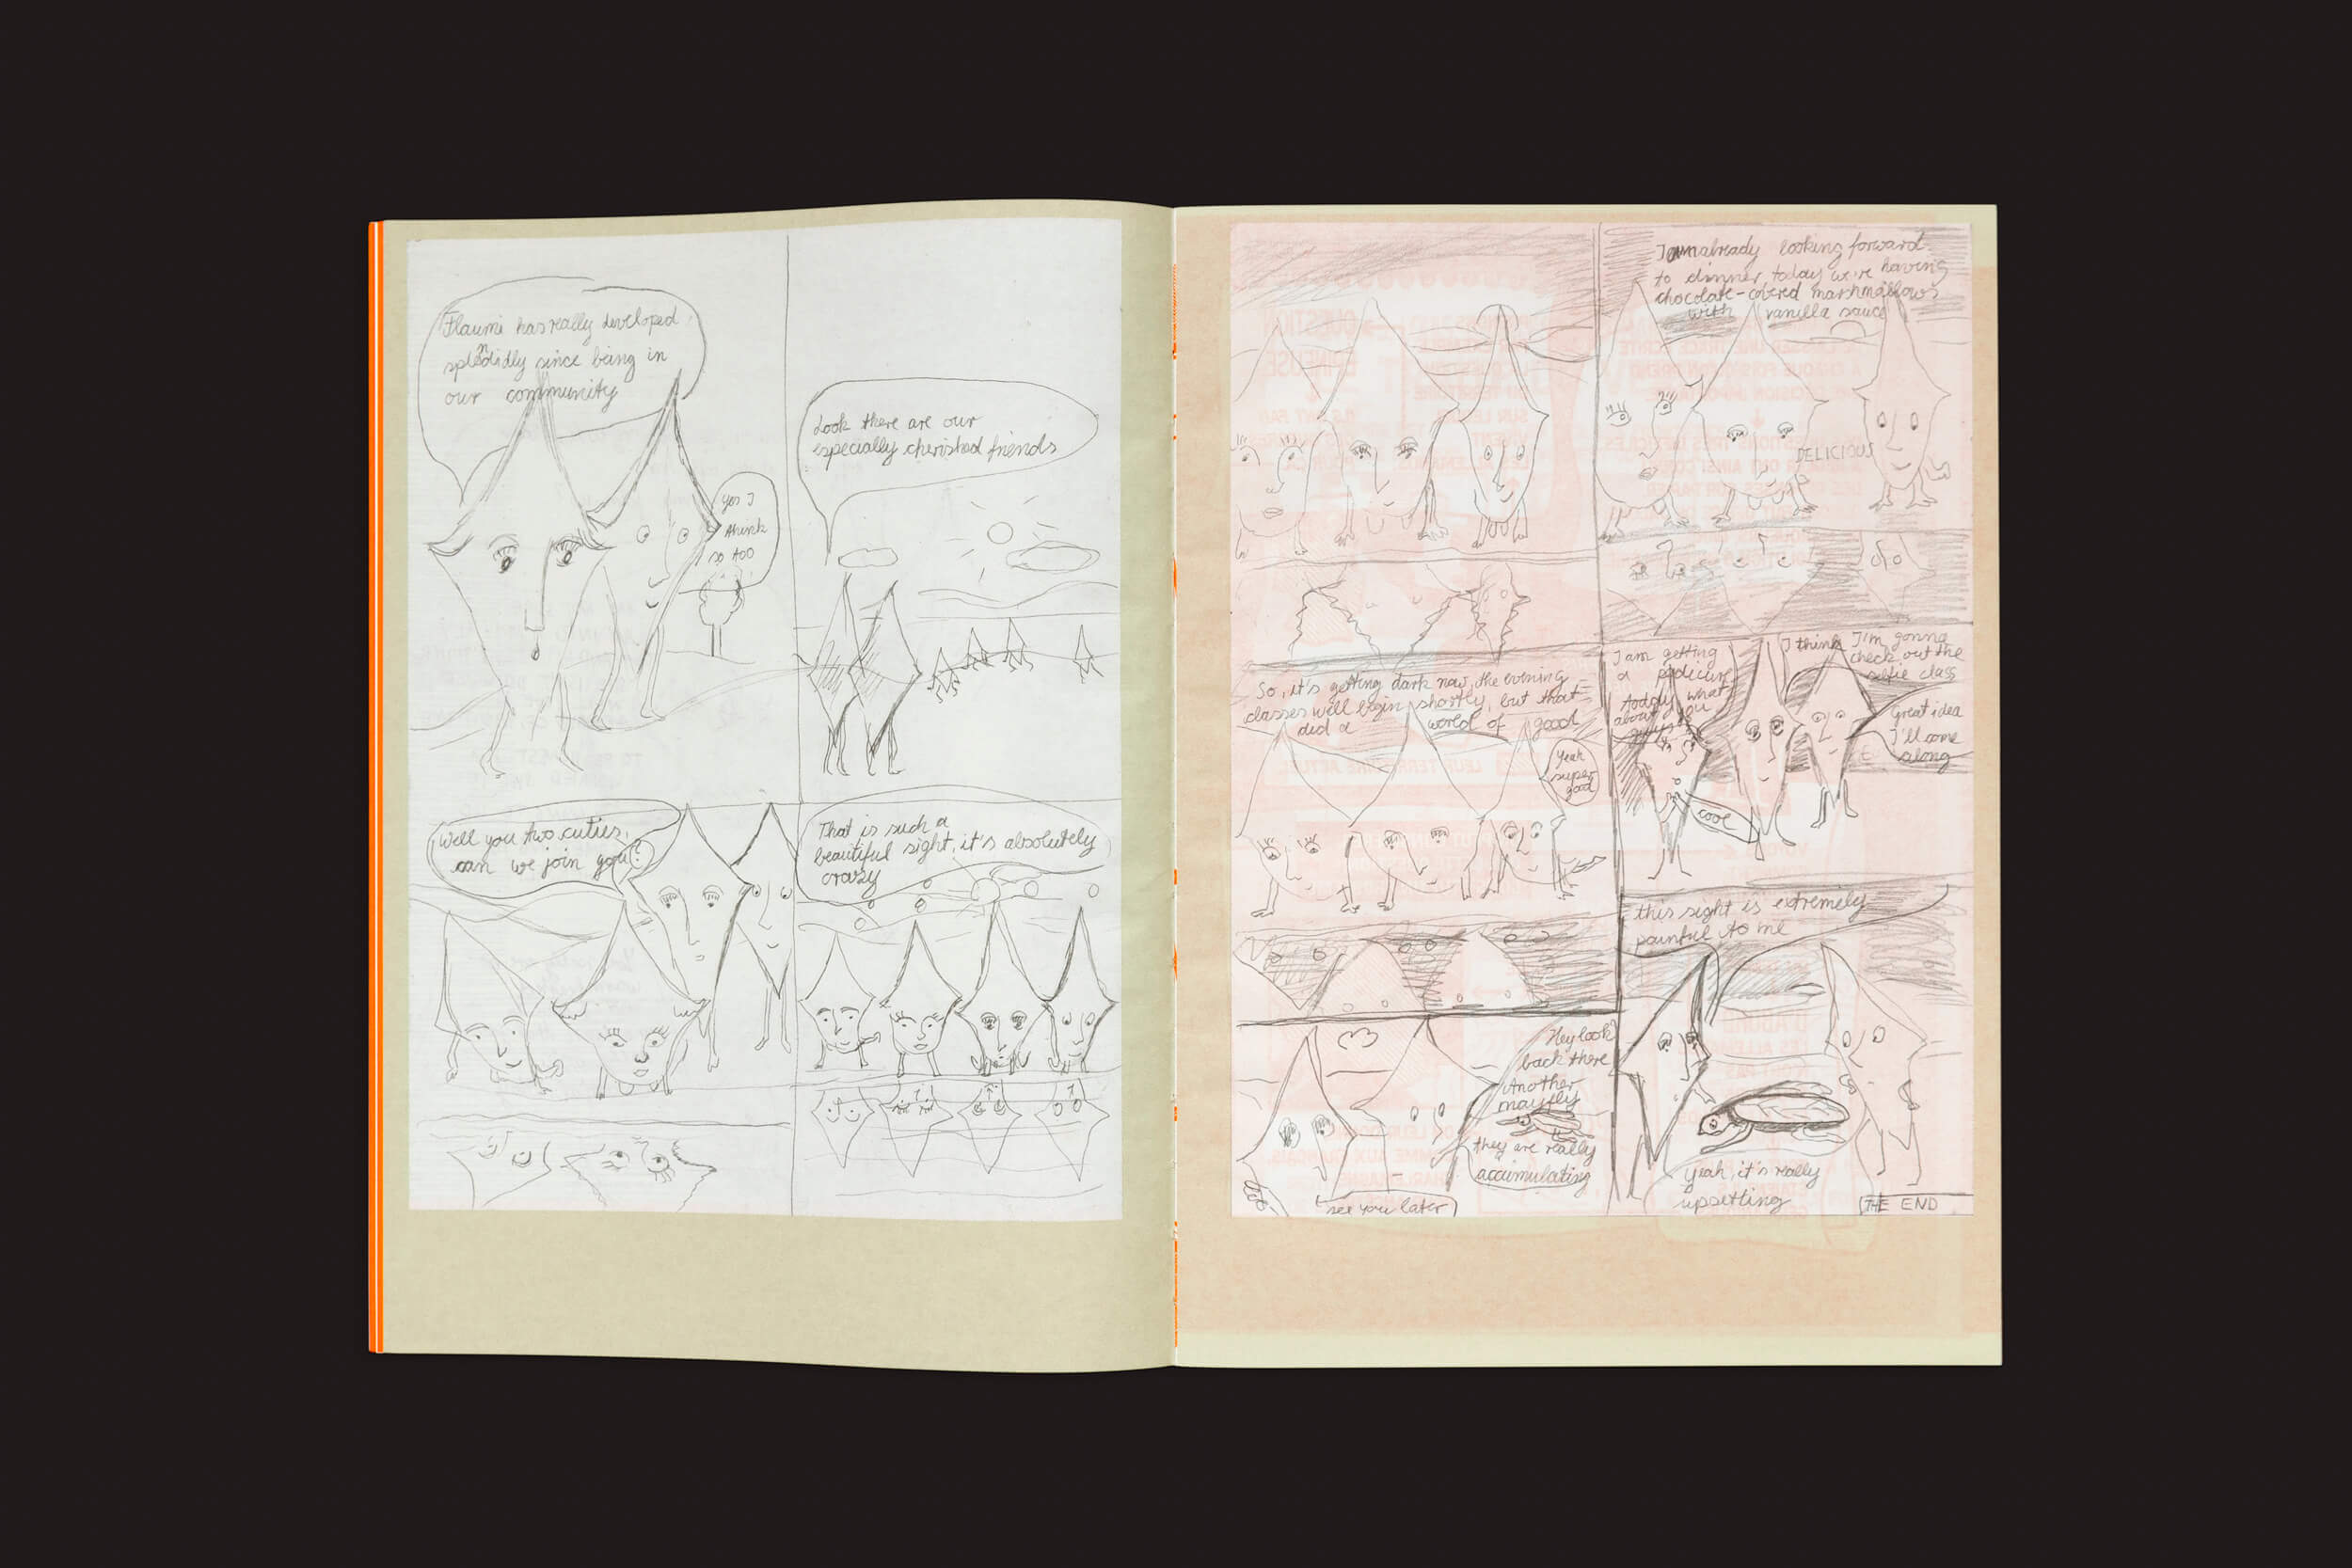 Flaumi has really developed
splendidly since being in
our community
Yes I
think
so too
Look there are our
especially cherished friends
Well you two cuties,
can we join you?
That is such a
beautiful sight, it's absolutely
crazy
I am already looking forward
to dinner, today we're having
chocolate-covered marshmallows
with vanilla sauce
DELICIOUS
So, it's getting dark now, the evening
classes will begin shortly, but that
did a world of good
Yeah
super
good
I am getting
a pedicure
today, what
about you
guys
I think I'm gonna
check out the
selfie class
Great idea
I'll come
along
cool
Hey look
back there
Another
mayfly
they are really
accumulating
see you later
this sight is extremely
painful to me
Yeah, it's really
upsetting
THE END